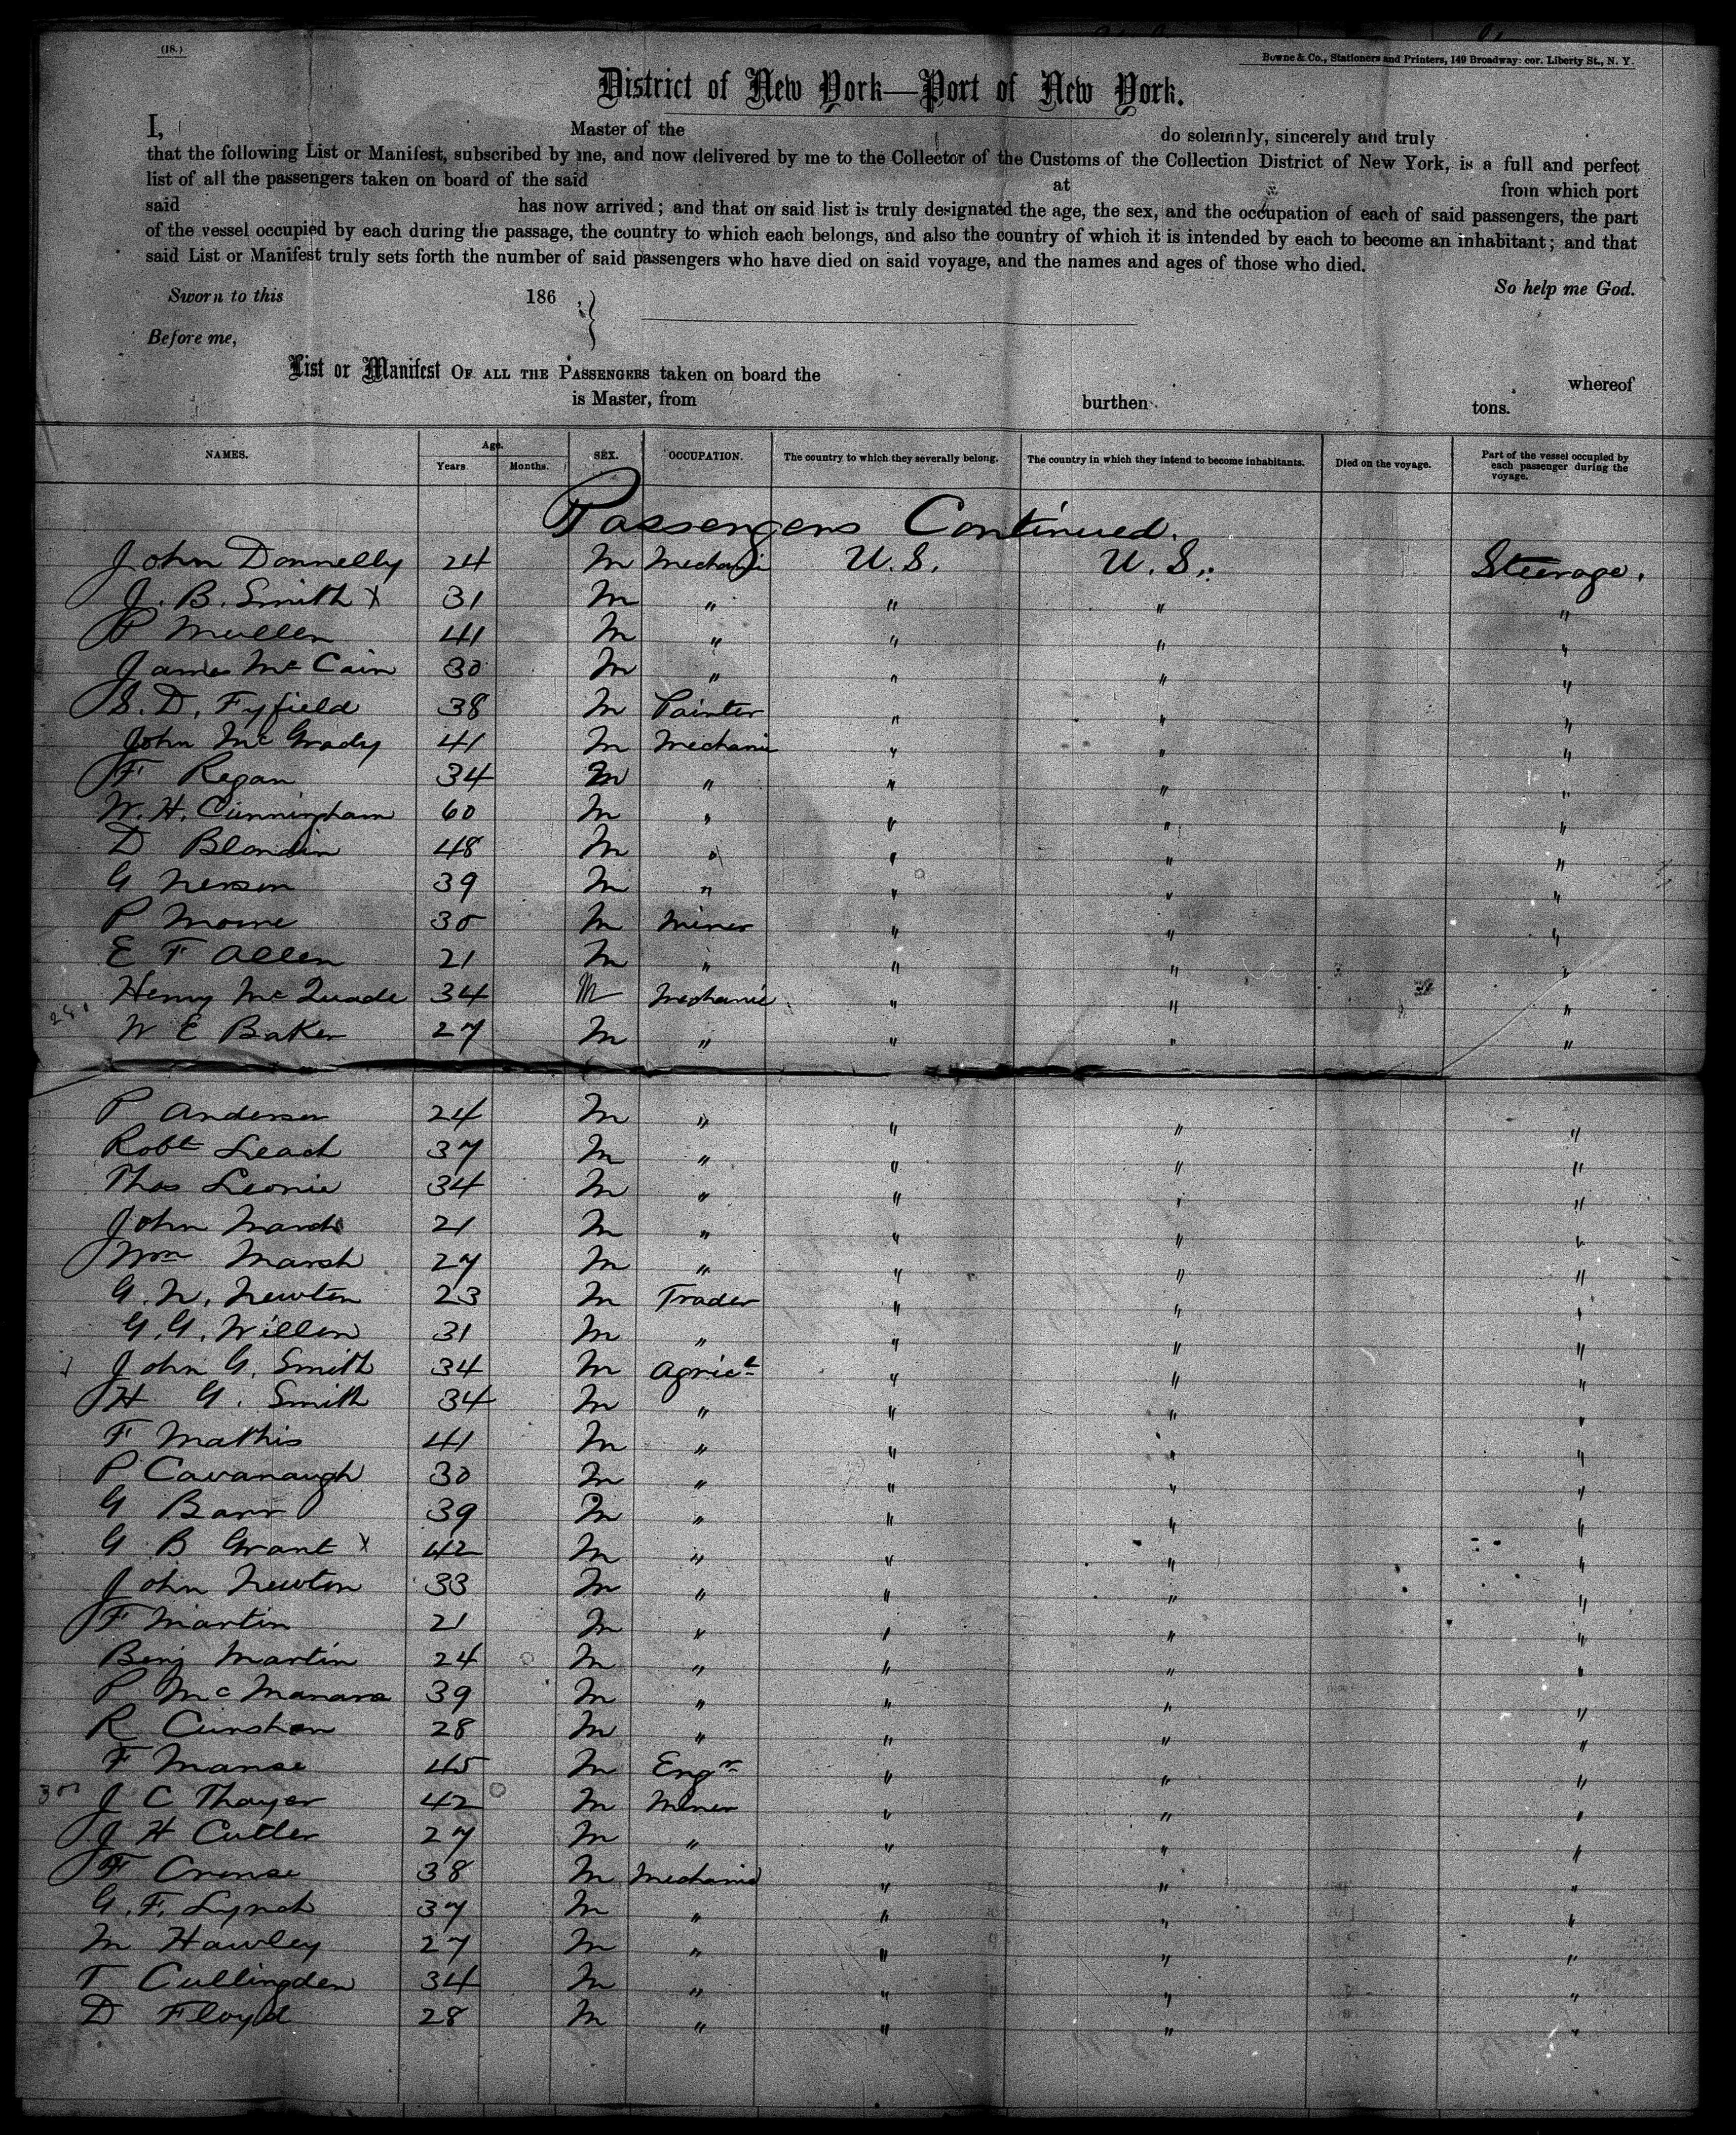 (18.)
Bowne & Co., Stationers and Printers, 149 Broadway: cor. Liberty St., N. Y.
District of New York—Port of New York.
I, Master of the do solemnly, sincerely and truly
that the following List or Manifest, subscribed by me, and now delivered by me to the Collector of the Customs of the Collection District of New York, is a full and perfect
list of all the passengers taken on board of the said at from which port
said has now arrived; and that on said list is truly designated the age, the sex, and the occupation of each of said passengers, the part
of the vessel occupied by each during the passage, the country to which each belongs, and also the country of which it is intended by each to become an inhabitant; and that
said List or Manifest truly sets forth the number of said passengers who have died on said voyage, and the names and ages of those who died.
So help me God.
Sworn to this 186
Before me,
List or Manifest OF ALL THE PASSENGERS taken on board the whereof
is Master, from burthen tons.
NAMES. Age. Years. Months. SEX. OCCUPATION. The country to which they severally belong. The country in which they intend to become inhabitants. Died on the voyage. Part of the vessel occupied by each passenger during the voyage.
Passengers Continued.
John Donnelly 24 M Mechanic U.S. U.S. Steerage.
J. B. Smith x 31 M " " " "
P Mullen 41 M " " " "
James McCain 30 M " " " "
S. D. Fyfield 38 M Painter " " "
John McGrady 41 M Mechanic " " "
F Regan 34 M " " " "
W. H. Cunningham 60 M " " " "
D Blondin 48 M " " " "
G 39 M " " " "
P 30 M Miner " " "
E F Allen 21 M " " " "
Henry McQuade 34 M Mechanic " " "
W E Baker 27 M " " " "
P Anderson 24 M " " " "
Robt Leach 37 M " " " "
Thos 34 M " " " "
John 21 M " " " "
Wm Marsh 27 M " " " "
G. N. Newton 23 M Trader " " "
G. G. Willen 31 M " " " "
John G. Smith 34 M Agrict " " "
H G. Smith 34 M " " " "
F Mathis 41 M " " " "
P Cavanaugh 30 M " " " "
G Barr 39 M " " " "
G B Grant x 42 M " " " "
John Newton 33 M " " " "
F Martin 21 M " " " "
Benj Martin 24 M " " " "
P 39 M " " " "
R 28 M " " " "
F Manse 45 M Engr " " "
J C Thayer 42 M Miner " " "
J H Cutler 27 M " " " "
F 38 M Mechanic " " "
G. F. Lynch 37 M " " " "
M Hawley 27 M " " " "
T Cullingden 34 M " " " "
D Floyd 28 M " " " "